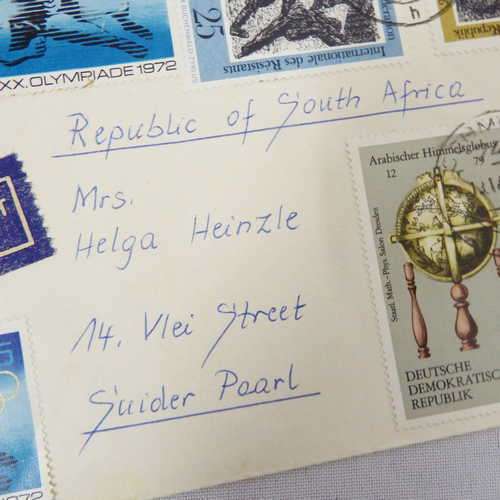 XX. OLYMPIADE 1972
25
Internationale des Résistants
Republik
Republic of South Africa
Mrs.
Helga Heinzle
14. Vlei Street
Suider Paarl
Arabischer Himmelsglobus
12
79
Staatl. Math.-Phys. Salon Dresden
DEUTSCHE
DEMOKRATISC
REPUBLIK
1972